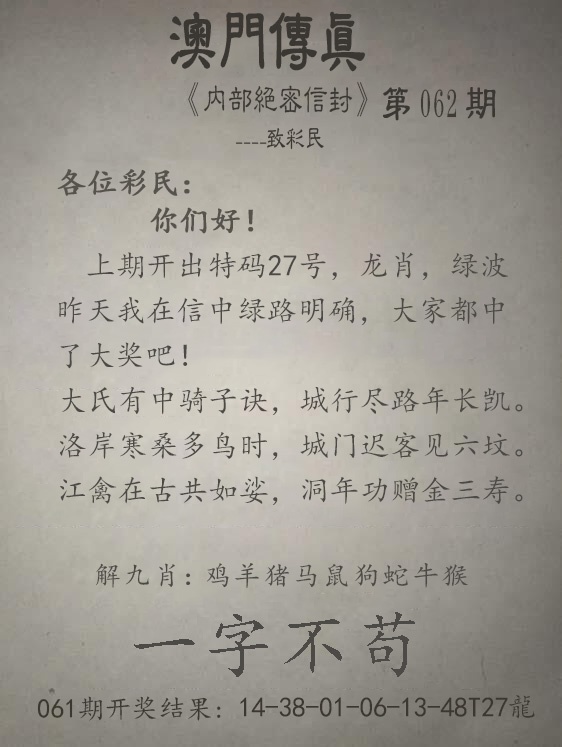 澳門傳眞
《内部絕密信封》第062期
----致彩民
各位彩民：
你们好！
上期开出特码27号，龙肖，绿波
昨天我在信中绿路明确，大家都中
了大奖吧！
大氏有中骑子诀，城行尽路年长凯。
洛岸寒桑多鸟时，城门迟客见六坟。
江禽在古共如娑，洞年功赠金三寿。
解九肖：鸡羊猪马鼠狗蛇牛猴
一字不苟
061期开奖结果：14-38-01-06-13-48T27龍